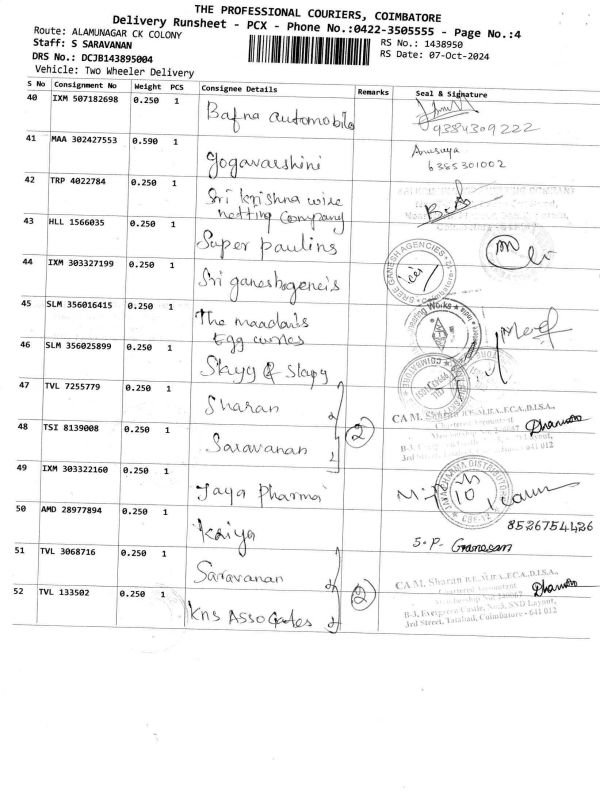 THE PROFESSIONAL COURIERS, COIMBATORE
Delivery Runsheet - PCX - Phone No.:0422-3505555 - Page No.:4
Route: ALAMUNAGAR CK COLONY
RS No.: 1438950
Staff: S SARAVANAN
RS Date: 07-Oct-2024
DRS No.: DCJB143895004
Vehicle: Two Wheeler Delivery
S No Consignment No Weight PCS Consignee Details Remarks Seal & Signature
40 IXM 507182698 0.250 1 Bafna automobile
9384309222
41 MAA 302427553 0.590 1 Yogavarshini
Anusuya
6385301002
42 TRP 4022784 0.250 1 Sri krishna wire
netting company
43 HLL 1566035 0.250 1 Super paulins
44 IXM 303327199 0.250 1 Sri ganeshagencis
SREE GANESH AGENCIES
45 SLM 356016415 0.250 1 The maadan's
Egg
46 SLM 356025899 0.250 1 Stayy & Slapy
47 TVL 7255779 0.250 1 Sharan
CA M. Sharan B.E.,M.B.A.,F.C.A.,D.I.S.A.,
Chartered Accountant
48 TSI 8139008 0.250 1 Saravanan 2
49 IXM 303322160 0.250 1 Jaya Pharma
JAYA PHARMA DISTRIBUTORS
CBE-12
50 AMD 28977894 0.250 1 Kaiya
8526754426
S.P. Ganesan
51 TVL 3068716 0.250 1 Saravanan
CA M. Sharan B.E.,M.B.A.,F.C.A.,D.I.S.A.,
Chartered Accountant
52 TVL 133502 0.250 1 KNS ASSOCiates 2
B-3, Evergreen Castle, No:3, SND Layout,
3rd Street, Tatabad, Coimbatore - 641 012